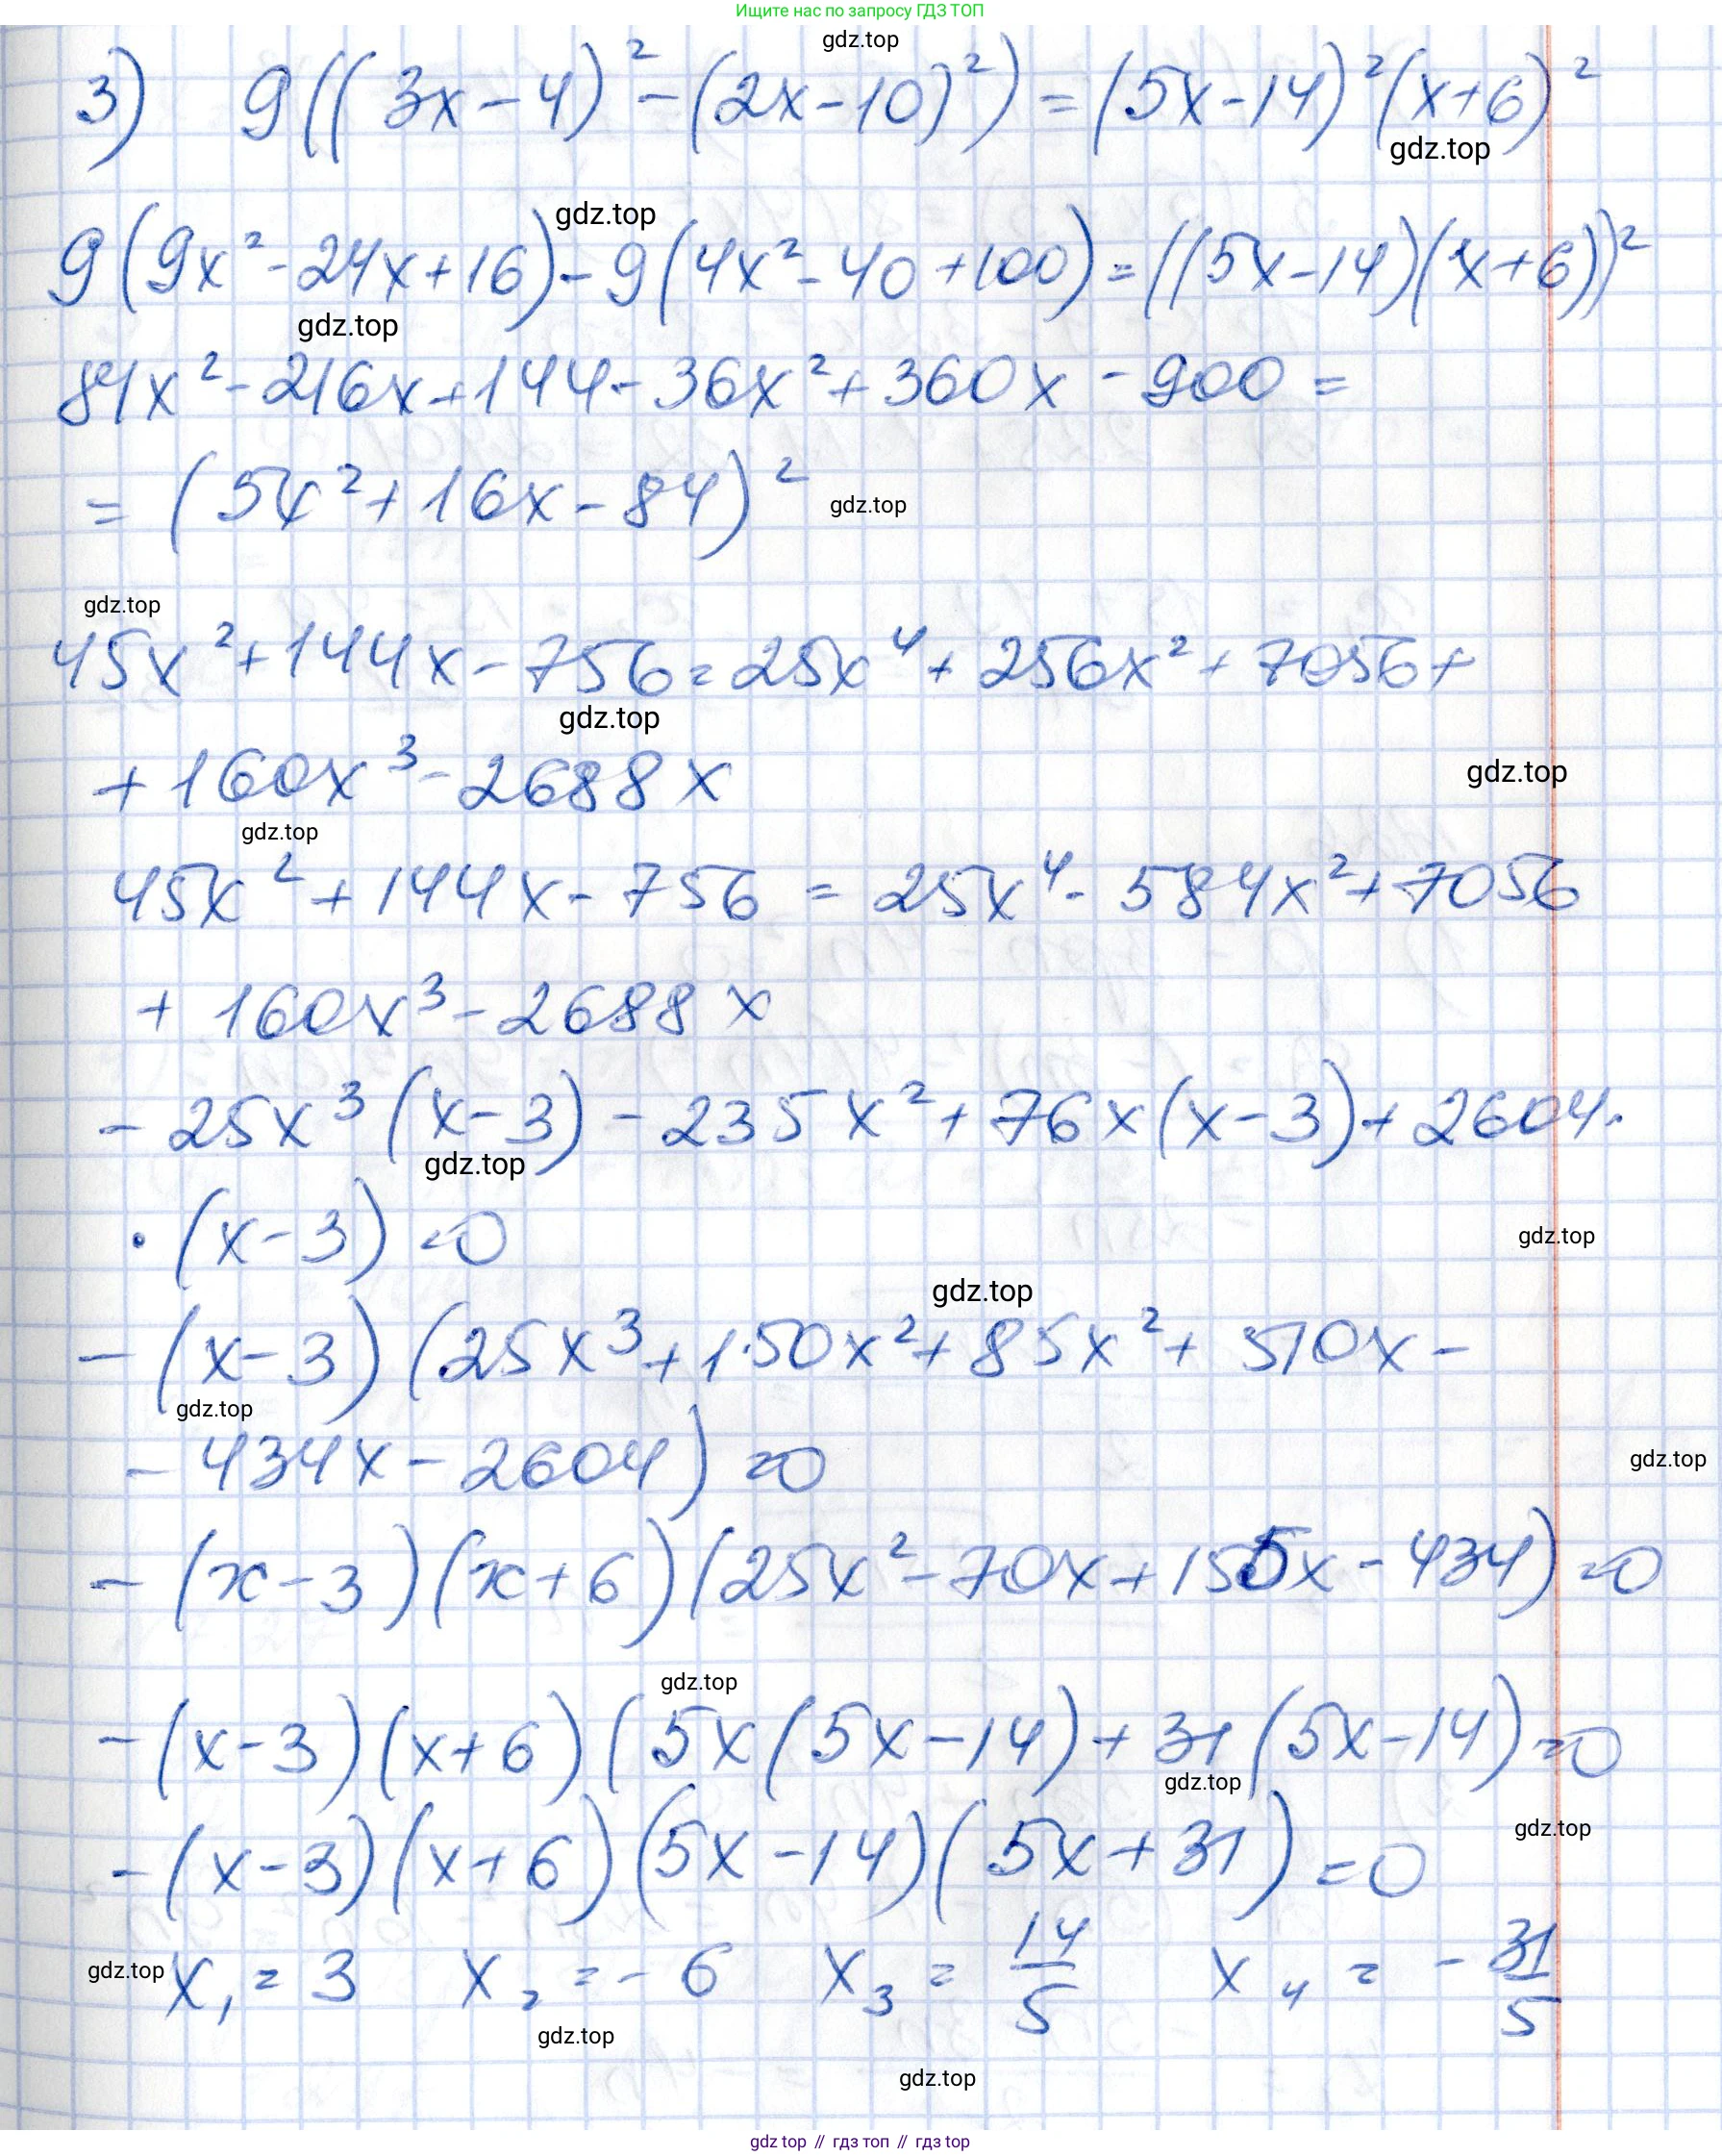 Ищите нас по запросу ГДЗ ТОП
gdz.top
3) 9((3x-4)²-(2x-10)²)=(5x-14)²(x+6)²
gdz.top
gdz.top
9(9x²-24x+16)-9(4x²-40+100)=((5x-14)(x+6))²
gdz.top
81x²-216x+144-36x²+360x-900=
=(5x²+16x-84)²
gdz.top
gdz.top
45x²+144x-756=25x⁴+256x²+7056+
gdz.top
+160x³-2688x
gdz.top
gdz.top
45x²+144x-756=25x⁴-584x²+7056
+160x³-2688x
-25x³(x-3)-235x²+76x(x-3)+2604·
gdz.top
·(x-3)=0
gdz.top
gdz.top
-(x-3)(25x³+150x²+85x²+510x-
gdz.top
-434x-2604)=0
gdz.top
-(x-3)(x+6)(25x²-70x+155x-434)=0
gdz.top
-(x-3)(x+6)(5x(5x-14)+31(5x-14)=0
gdz.top
gdz.top
-(x-3)(x+6)(5x-14)(5x+31)=0
gdz.top
x₁=3 x₂=-6 x₃=14/5 x₄=-31/5
gdz.top
gdz.top
gdz top // гдз топ // гдз top